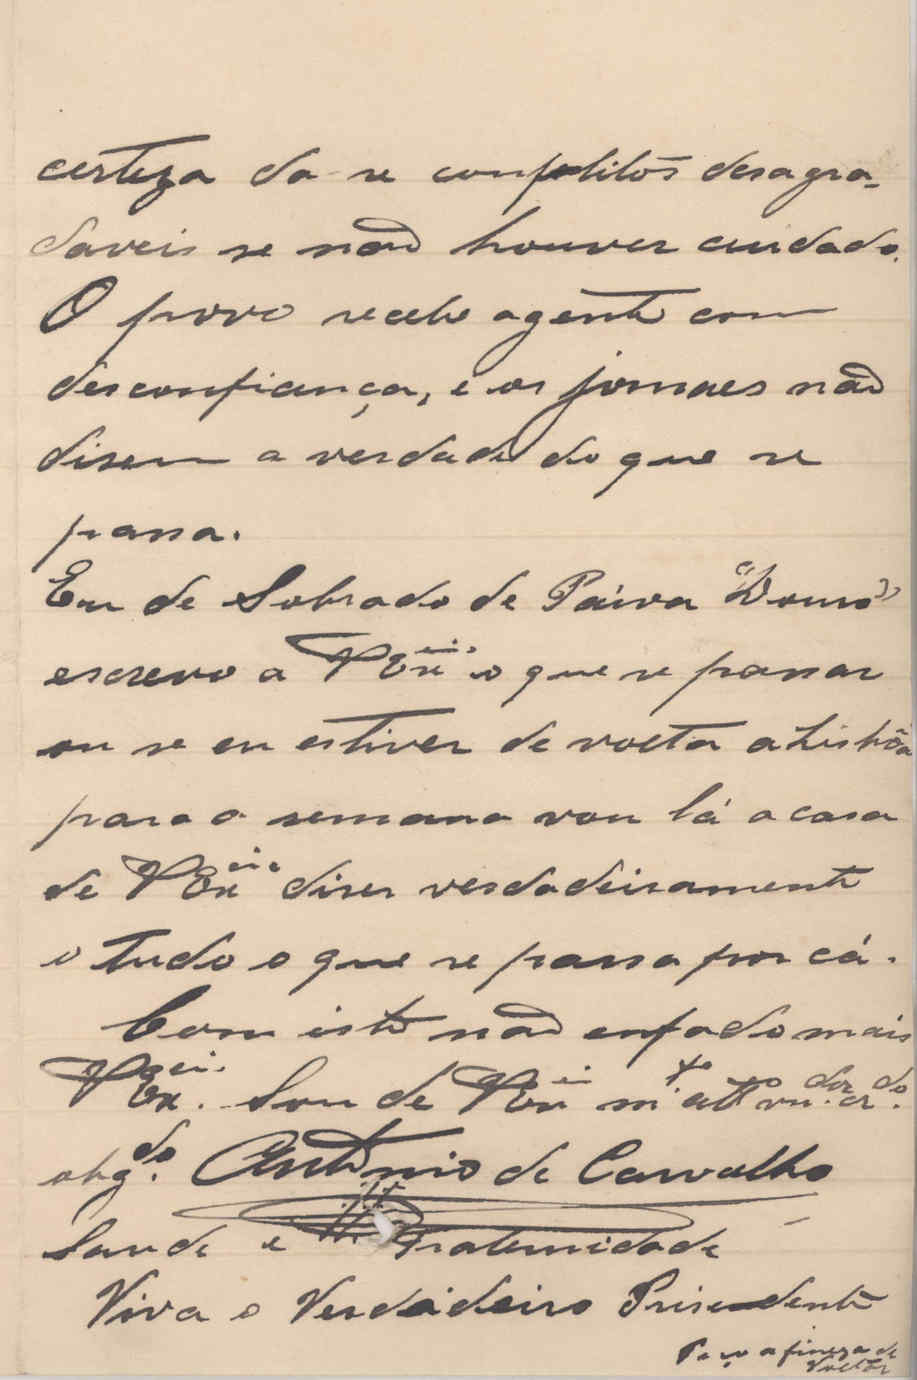 certeza da-se conflitos desagra-
daveis se não houver cuidado.
O povo recebe agente com
desconfiança, e os jornaes não
disem a verdade do que se
passa.
Eu de Sobrado de Paiva "Douro"
escrevo a V Exci. o que se passar
ou se eu estiver de volta a Lisbôa
para a semana vou lá a casa
de V Excia diser verdadeiramente
o tudo o que se passa por cá.
Com isto não enfado mais
V Exci. Sou de V Exci m.to att.o vn.dor cr.do
obg.do António de Carvalho
Saude e Fraternidade
Viva o Verdadeiro Presedente
Faço a fineza de
voltar